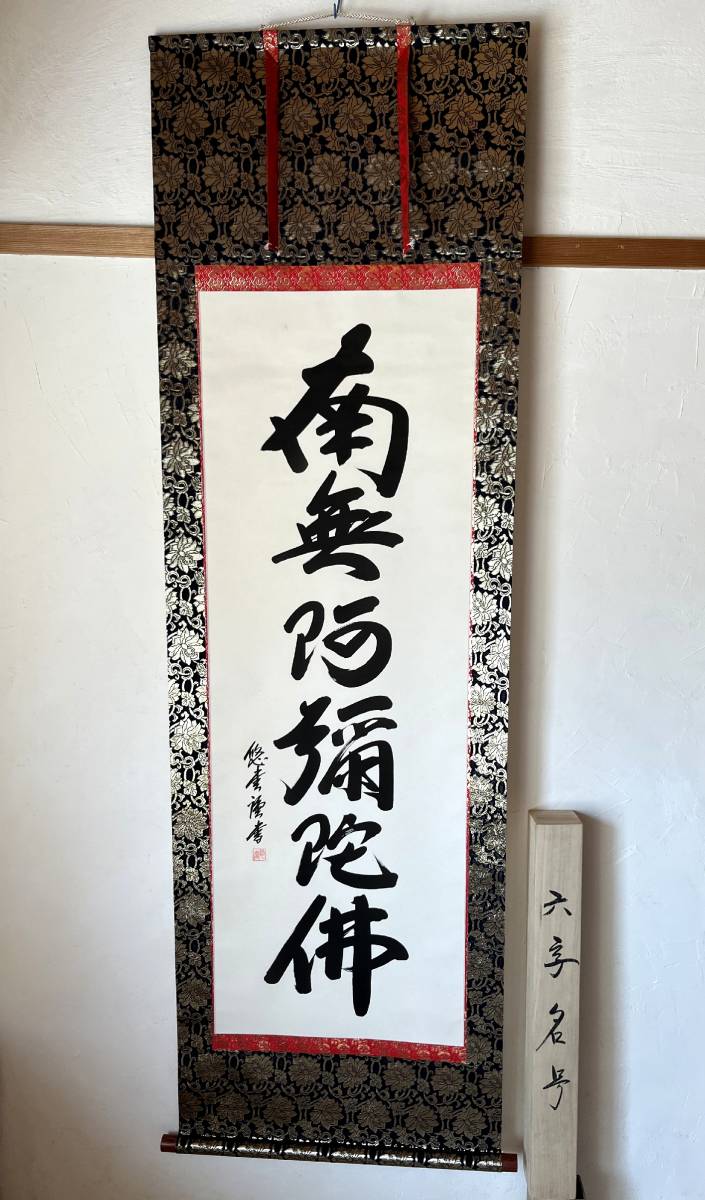 南無阿彌陀佛
悠雲謹書
六字名号